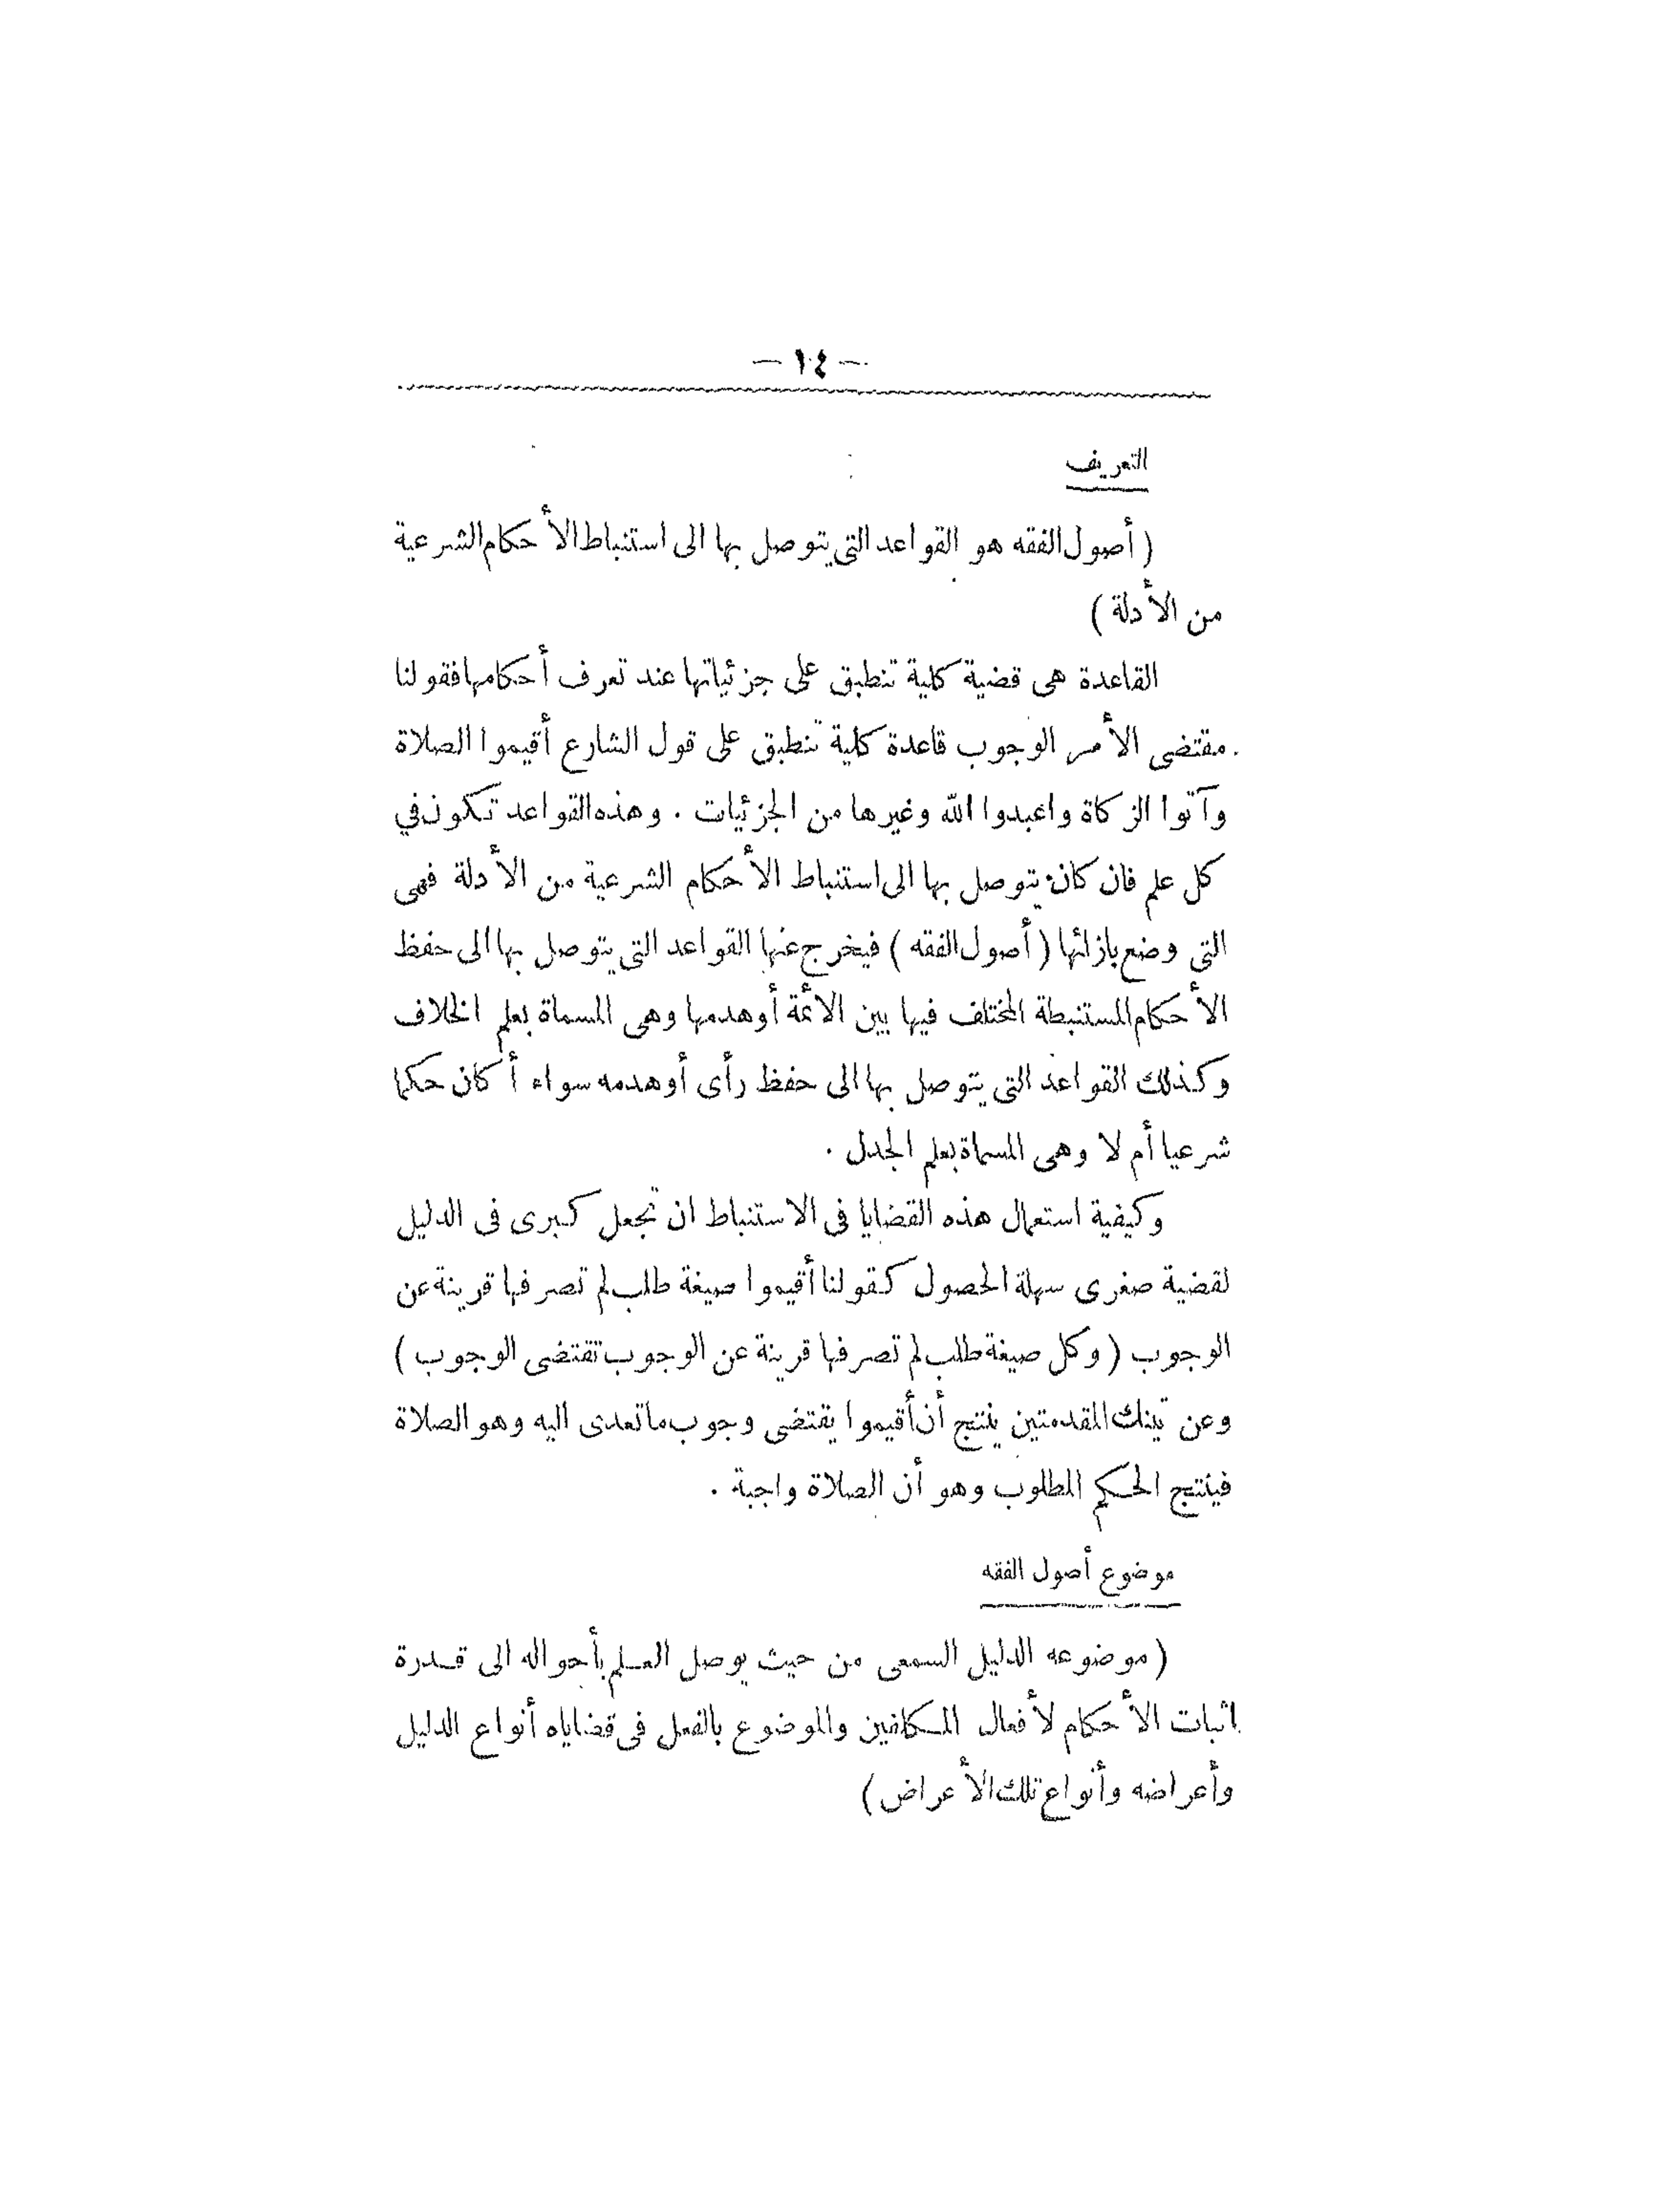 — ١٤ —
التعريف
( أصول الفقه هو القواعد التى يتوصل بها الى استنباط الأحكام الشرعية
من الأدلة )
القاعدة هى قضية كلية تنطبق على جزئياتها عند تعرف أحكامها فقولنا
مقتضى الأمر الوجوب قاعدة كلية تنطبق على قول الشارع أقيموا الصلاة
وآتوا الزكاة واعبدوا الله وغيرها من الجزئيات . وهذه القواعد تكون في
كل علم فان كان يتوصل بها الى استنباط الأحكام الشرعية من الأدلة فهى
التى وضع بازائها ( أصول الفقه ) فيخرج عنها القواعد التى يتوصل بها الى حفظ
الأحكام المستنبطة المختلف فيها بين الائمة أو هدمها وهى المسماة بعلم الخلاف
وكذلك القواعد التى يتوصل بها الى حفظ رأى أو هدمه سواء أكان حكما
شرعيا أم لا وهى المسماة بعلم الجدل .
وكيفية استعمال هذه القضايا فى الاستنباط ان تجعل كبرى فى الدليل
لقضية صغرى سهلة الحصول كقولنا أقيموا صيغة طلب لم تصرفها قرينة عن
الوجوب ( وكل صيغة طلب لم تصرفها قرينة عن الوجوب تقتضى الوجوب )
وعن تينك المقدمتين ينتج أن أقيموا يقتضى وجوب ما تعدى اليه وهو الصلاة
فينتج الحكم المطلوب وهو أن الصلاة واجبة .
موضوع أصول الفقه
( موضوعه الدليل السمعى من حيث يوصل العلم بأحواله الى قدرة
اثبات الأحكام لأفعال المكلفين والموضوع بالفعل فى قضاياه أنواع الدليل
وأعراضه وأنواع تلك الأعراض )